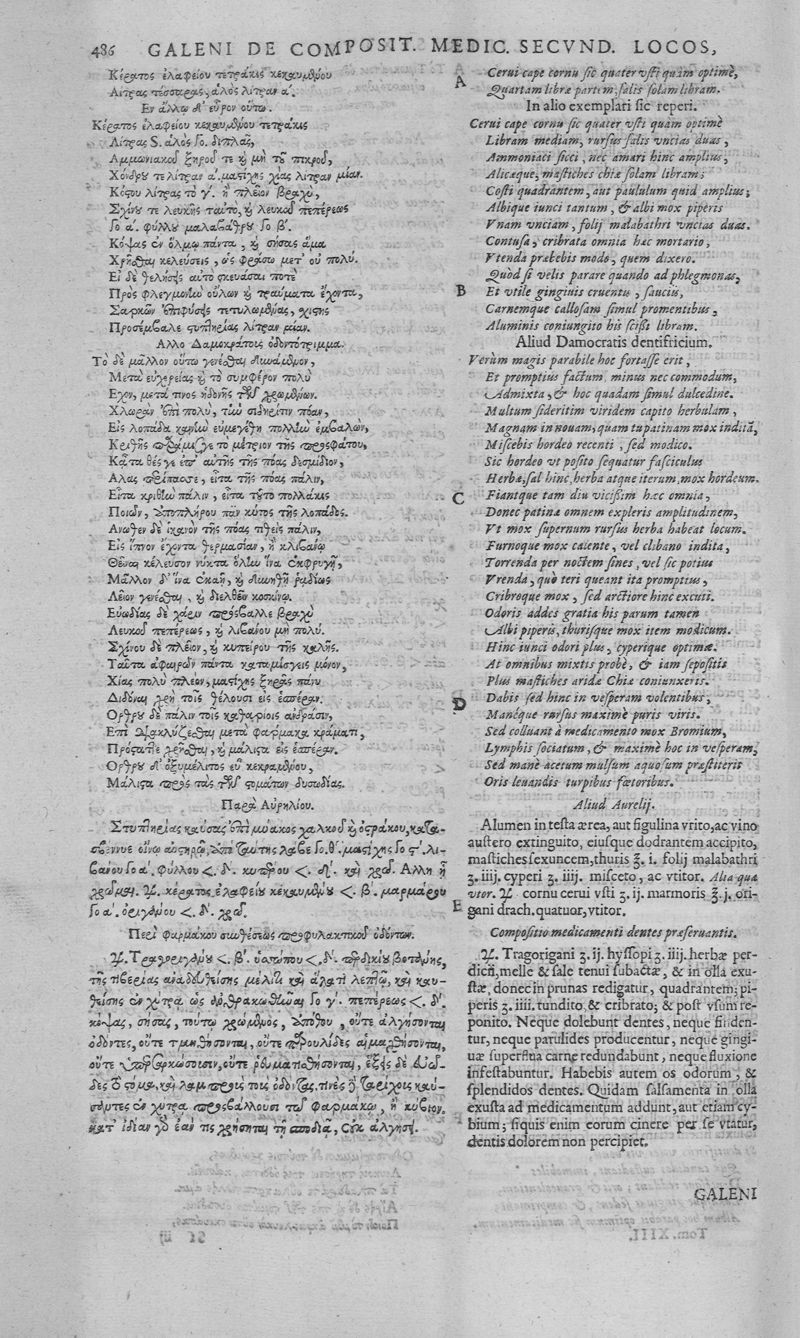 486 GALENI DE COMPOSIT. MEDIC. SECVND. LOCOS,
Κέρατος ἐλαφείου τετράκις κεκαυμένου
Λίτρας τέσσαρας, ἁλὸς λίτραν α΄.
Εν ἄλλῳ δ' εὗρον οὕτω.
Κέρατος ἐλαφείου κεκαυμένου τετράκις
Λίτρας S. ἁλὸς Γο. διπλᾶς,
Αμμωνιακοῦ ξηροῦ τε καὶ μὴ τοῦ πικροῦ,
Χόνδρου τε λίτραν α. μαστίχης χίας λίτραν μίαν.
Κόστου λίτρας τὸ γ΄. ἢ πλεῖον βραχὺ,
Σχίνου τε λευκῆς ταυτὸ, καὶ λευκοῦ πεπέρεως
Γο α΄. φύλλου μαλαβάθρου Γο β΄.
Κόψας ἐν ὅλμῳ πάντα, καὶ σήσας ἅμα
Χρῆσθαι κελεύσεις, ὡς φράσω μετ' οὐ πολύ.
Εἰ δὲ θελήσῃς αὐτὸ σκευάσαι ποτὲ
Πρὸς φλεγμονὴν οὔλων καὶ τραύματα ἔχοντα,
Σαρκῶν ἐπιφύσης τετυλωμένας, σχιστῆς
Προσέμβαλε στυπτηρίας λίτραν μίαν.
Αλλο Δαμοκράτους ὀδοντότριμμα.
Τὸ δὲ μᾶλλον οὕτω γενέσθαι δυνάμενον,
Μετὰ εὐχερείας καὶ τὸ συμφέρον πολὺ
Εχον, μετά τινος ἡδονῆς τῶν χρωμένων.
Χλωρὰν ἐπὶ πολὺ, τὴν σιδηρῖτιν πόαν,
Εἰς λοπάδα καινὴν εὐμεγέθη πολλὴν ἐμβαλὼν,
Κριθῆς παράμιζγε τὸ μέτριον τῆς προσφάτου,
Κᾆτα θές γε ἐπ' αὐτῆς τῆς πόας δεσμίδιον,
Αλας ἐπίπασσε, εἶτα τῆς πόας πάλιν,
Εἶτα κριθὴν πάλιν, εἶτα τοῦτο πολλάκις
Ποιῶν, ἀποπλήρου πᾶν κύτος τῆς λοπάδος.
Ανωθεν δὲ ἱκανὸν τῆς πόας τιθεὶς πάλιν,
Εἰς ἵπνον ἔχοντα θερμασίαν, ἢ κλιβάνῳ
Θεῖναι κέλευσον νύκτα ὅλην ἵνα ἐκφρυγῇ,
Μᾶλλον δ' ἵνα ἐκκαῇ, καὶ δυνηθῇ ῥᾳδίως
Λεῖον γενέσθαι, καὶ διελθεῖν κοσκίνῳ.
Εὐωδίας δὲ χάριν πρόσβαλλε βραχὺ
Λευκοῦ πεπέρεως, καὶ λιβάνου μὴ πολύ.
Σχίνου δὲ πλεῖον, καὶ κυπείρου τῆς καλῆς.
Ταῦτα ἀφαιρῶν πάντα καταμίσγεις μόνον,
Χίας πολὺ πλέον, μαστίχης ξηρᾶς πάνυ
Διδόναι χρὴ τοῖς θέλουσι εἰς ἑσπέραν.
Ορθρου δὲ πάλιν τοῖς καθαρίοις ἀνδράσιν,
Επὶ διακλύζεσθαι μετὰ φάρμακα κράματι,
Πρόσταττε χρῆσθαι, καὶ μάλιστα εἰς ἑσπέραν.
Ορθρου δ' ὀξυμέλιτος εὖ κεκραμένου,
Μάλιστα πρὸς τὰς τῶν στομάτων δυσωδίας.
Παρὰ Αὐρηλίου.
Στυπτηρίας καύσας ἐπὶ μύακος χαλκοῦ καὶ ὀστράκου, κατα-
σβέννυε οἴνῳ αὐστηρῷ, ἀπὸ ταύτης λάβε Γο. θ΄. μαστίχης Γο ϛ΄. λι-
βάνου Γο α΄. φύλλου <. δ΄. κυπέρου <. δ΄. καὶ χρῶ. Αλλη ᾗ
χρῶμαι. ♃. κέρατος ἐλαφείου κεκαυμένου <. β΄. μαρμάρου
Γο α΄. ὀριγάνου <. δ΄. χρῶ.
Περὶ φαρμάκου συνθέσεως προφυλακτικοῦ ὀδόντων.
♃. Τραγοριγάνου <. β΄. ὑσσώπου <. δ΄. περδικίου βοτάνης,
τῆς τιβερίας ἀναδευθείσης μέλιτι καὶ ἅλατι λεπτῷ, καὶ καυ-
θείσης ἐν χύτρᾳ ὡς ἀνθρακωθῆναι Γο γ΄. πεπέρεως <. δ΄.
κόψας, σήσας, τούτῳ χρώμενος, ἀπόθου, οὔτε ἀλγήσονται
ὀδόντες, οὔτε τμηθήσονται, οὔτε παρουλίδες αἱμαχθήσονται,
οὔτε ὑπερσαρκώσουσιν, οὔτε ῥευματισθήσονται, ἕξεις δὲ εὐῶ-
δες τὸ στόμα, καὶ λαμπροὺς τοὺς ὀδόντας. τινὲς ἢ ταρίχους καύ-
σαντες ἐν χύτρᾳ προσβάλλουσι τῷ φαρμάκῳ, ἢ κύβιον.
κατ' ἰδίαν γὰρ ἐάν τις χρήσηται τῇ σποδιᾷ, οὐκ ἀλγήσῃ.
A
B
C
D
E
Cerui cape cornu sic quater vsti quàm optimè,
Quartam libræ partem, salis solam libram.
In alio exemplari sic reperi.
Cerui cape cornu sic quater vsti quàm optimè
Libram mediam, rursus salis vncias duas,
Ammoniaci sicci, nec amari hinc amplius,
Alicæque, mastiches chiæ solam libram;
Costi quadrantem, aut paululum quid amplius;
Albique iunci tantum, & albi mox piperis
Vnam vnciam, folij malabathri vncias duas.
Contusa, cribrata omnia hac mortario,
Vtenda præbebis modo, quem dixero.
Quòd si velis parare quando ad phlegmonas,
Et vtile gingiuis cruentis, sauciis,
Carnemque callosam simul promentibus,
Aluminis coniungito his scissi libram.
Aliud Damocratis dentifricium.
Verùm magis parabile hoc fortasse erit,
Et promptius factum, minus nec commodum,
Admixta, & hoc quadam simul dulcedine.
Multum sideritim viridem capito herbulam,
Magnam in nouam, quam tu patinam mox inditã,
Miscebis hordeo recenti, sed modico.
Sic hordeo vt posito sequatur fasciculus
Herbæ, sal hinc, herba atque iterum, mox hordeum.
Fiantque tam diu vicissim hæc omnia,
Donec patinæ omnem expleris amplitudinem,
Vt mox supernum rursus herba habeat locum.
Furnoque mox calente, vel clibano indita,
Torrenda per noctem sines, vel sic potius
Vrenda, quò teri queant ita promptius,
Cribroque mox, sed arctiore hinc excuti.
Odoris addes gratia his parum tamen
Albi piperis, thurisque mox item modicum.
Hinc iunci odori plus, cyperique optimæ.
At omnibus mixtis probè, & iam sepositis
Plus mastiches aridæ Chiæ coniunxeris.
Dabis sed hinc in vesperam volentibus,
Manéque rursus maximè puris viris.
Sed colluant à medicamento mox Bromium,
Lymphis sociatum, & maximè hoc in vesperam,
Sed manè acetum mulsum aquosum præstiteris
Oris leuandis turpibus fœtoribus.
Aliud Aurelij.
Alumen in testa ærea, aut figulina vrito, ac vino
austero extinguito, eiusque dodrantem accipito,
mastiches sexuncem, thuris ℥. i. folij malabathri
ʒ. iiij. cyperi ʒ. iiij. misceto, ac vtitor. Alia qua
vtor. ♃ cornu cerui vsti ʒ. ij. marmoris ℥. j. ori-
gani drach. quatuor, vtitor.
Compositio medicamenti dentes præseruantis.
♃. Tragorigani ʒ. ij. hyssopi ʒ. iiij. herbæ per-
dicii, melle & sale tenui subactæ, & in olla exu-
stæ, donec in prunas redigatur, quadrantem; pi-
peris ʒ. iiii. tundito, & cribrato; & post vsum re-
ponito. Neque dolebunt dentes, neque finden-
tur, neque parulides producentur, neque gingi-
uæ superflua carne redundabunt, neque fluxione
infestabuntur. Habebis autem os odorum, &
splendidos dentes. Quidam salsamenta in olla
exusta ad medicamentum addunt, aut etiam cy-
bium; siquis enim eorum cinere per se vtatur,
dentis dolorem non percipiet.
GALENI